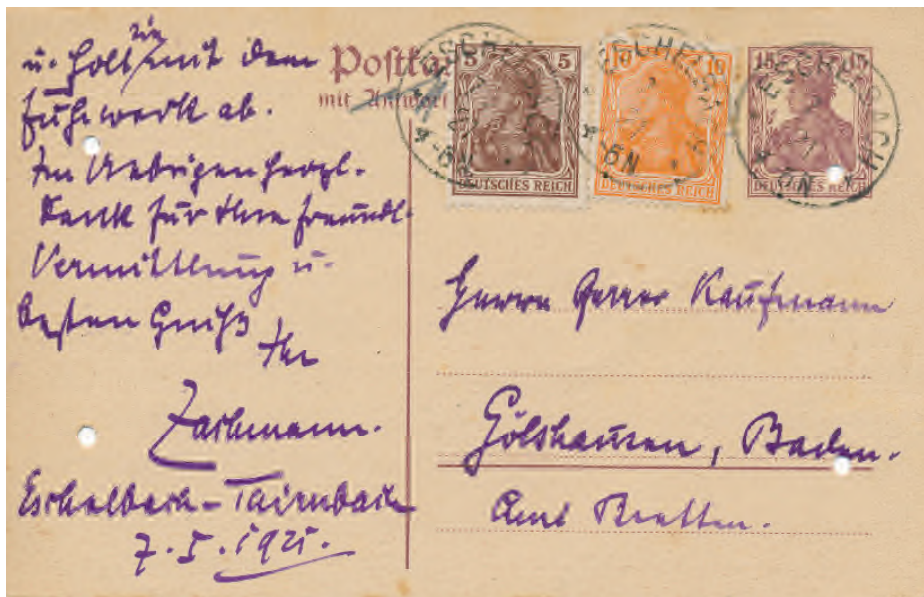 u. holt sie mit dem
Fuhrwerk ab.
Im Uebrigen herzl.
Dank für Ihre freundl.
Vermittlung u.
besten Gruß
Ihr
Zachmann.
Eschelbach-Tairnbach
7.I.1921.
Postka
mit Antwort
5 5
DEUTSCHES REICH
10 10
DEUTSCHES REICH
15 15
DEUTSCHES REICH
Herrn Pfarrer Kaufmann
Gölshausen, Baden.
Amt Bretten.